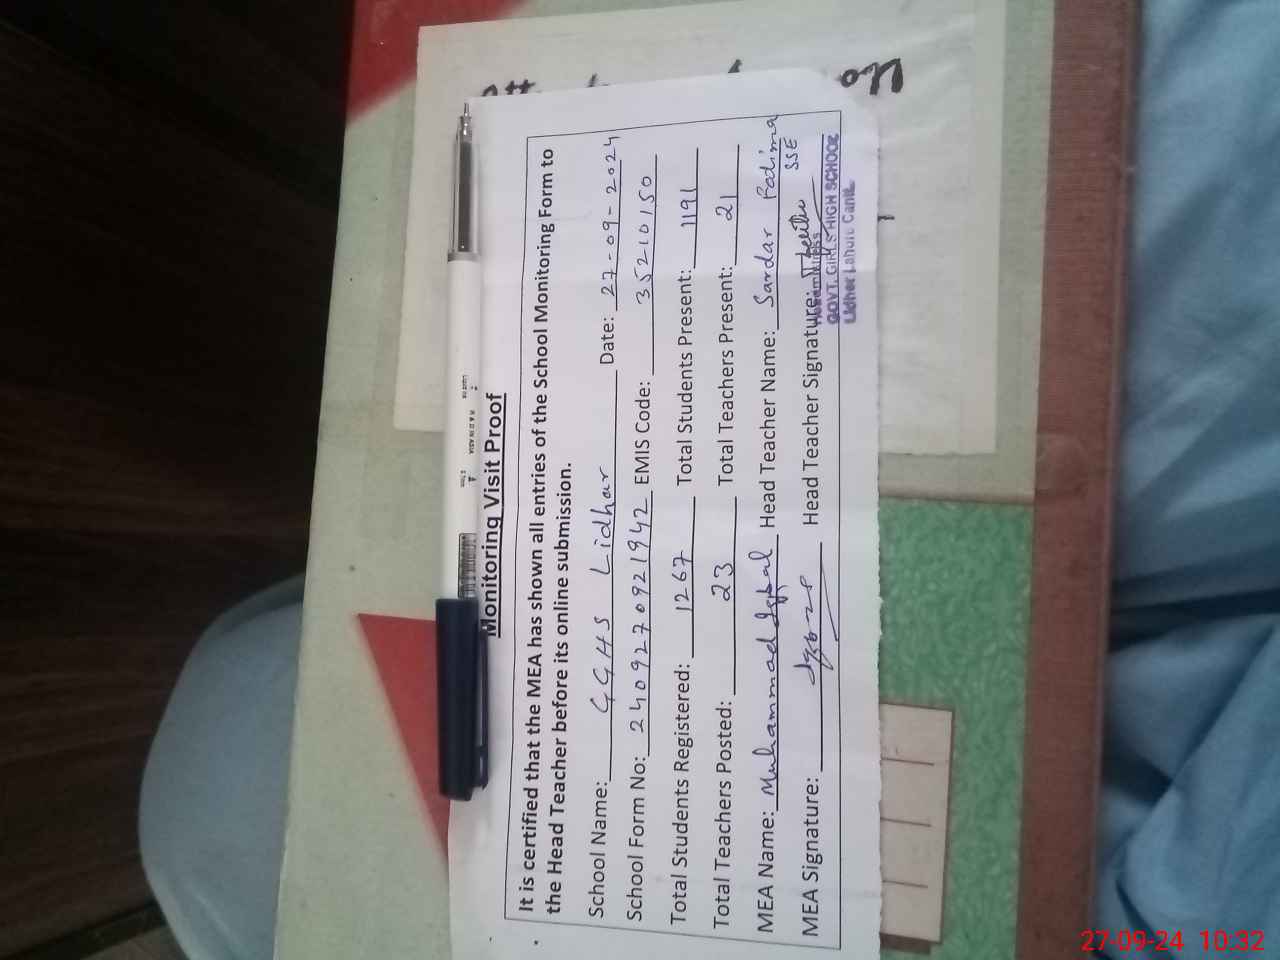 Monitoring Visit Proof
It is certified that the MEA has shown all entries of the School Monitoring Form to
the Head Teacher before its online submission.
School Name: GGHS Lidhar Date: 27-09-2024
School Form No: 2409270921942 EMIS Code: 35210150
Total Students Registered: 1267 Total Students Present: 1191
Total Teachers Posted: 23 Total Teachers Present: 21
MEA Name: Muhammad Iqbal Head Teacher Name: Sardar Fatima
MEA Signature: Head Teacher Signature: SSE
GOVT. GIRLS HIGH SCHOOL
Lidher Lahore Cantt.
27-09-24 10:32